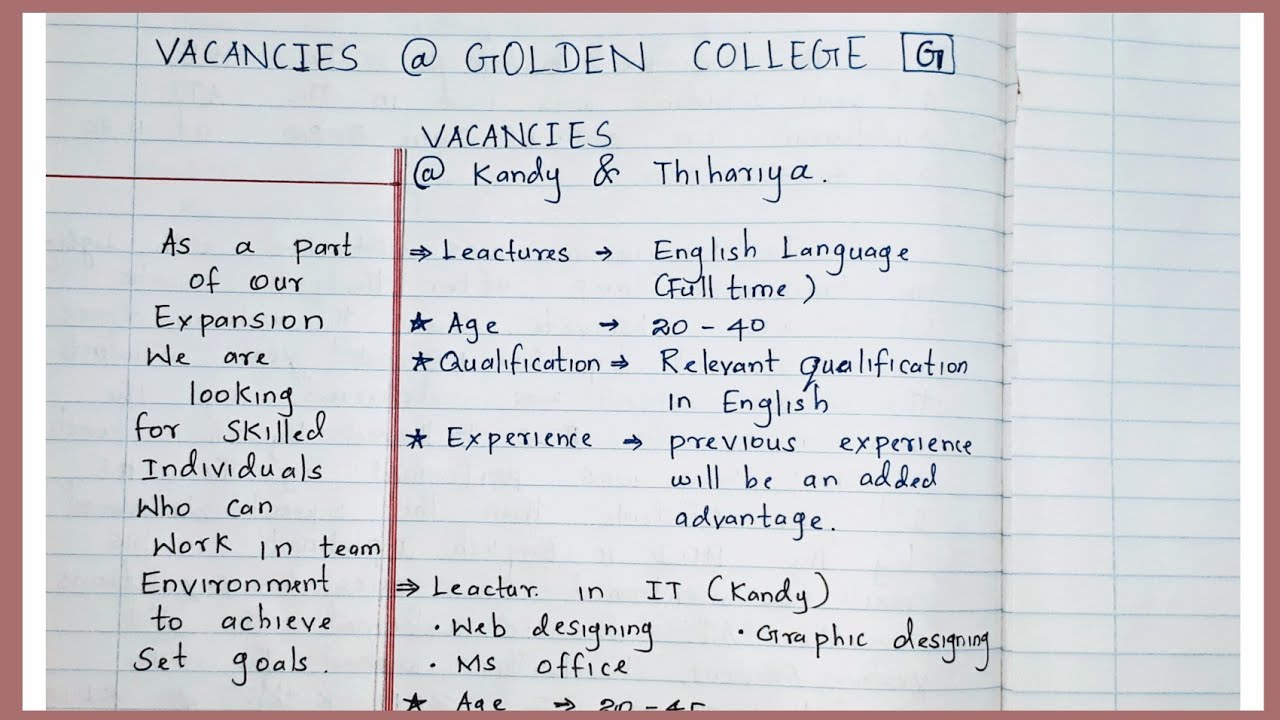 VACANCIES @ GOLDEN COLLEGE G
VACANCIES
@ Kandy & Thihariya.
As a part
of our
Expansion
We are
looking
for Skilled
Individuals
Who can
Work in team
Environment
to achieve
Set goals.
⇒ Leactures → English Language
(Full time)
★ Age → 20 - 40
★ Qualification ⇒ Relevant qualification
in English
★ Experience → previous experience
will be an added
advantage.
⇒ Leactur. in IT (Kandy)
• Web designing • Graphic designing
• Ms office
★ Age → 20 - 45